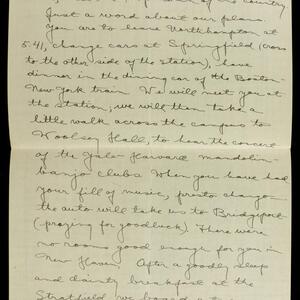 of the country
Just a word about our plans.
You are to leave Northhampton at
5:41, change cars at Springfield (cross
to the other side of the station), have
dinner in the dining car of the Boston-
New York train. We will meet you at
the station; we will then take a
little walk across the campus to
Woolsey Hall, to hear the concert
of the Yale-Harvard mandolin-
banjo clubs. When you have had
your fill of music, presto chango
the auto will take us to Bridgeport
(praying for goodluck) There were
no rooms good enough for you in
New Haven. After a goodly sleep
and dainty breakfast at the
Stratfield, we